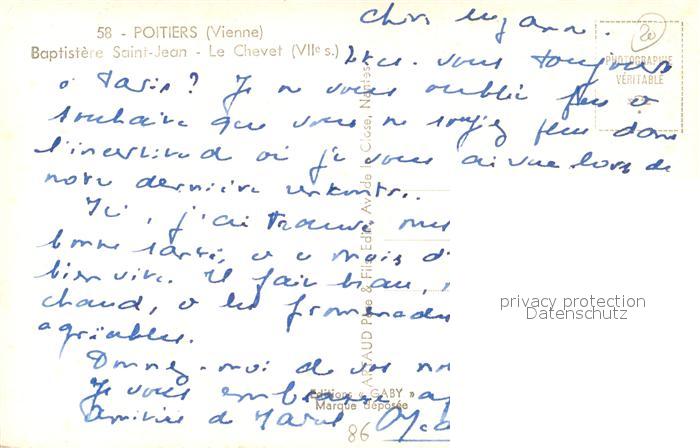 58 - POITIERS (Vienne)
Baptistère Saint-Jean - Le Chevet (VIIe s.)
PHOTOGRAPHIE
VÉRITABLE
20
Chère Suzanne.
Etes-vous toujours
à Paris? Je ne vous oublie pas et
souhaite que vous ne soyez plus dans
l'incertitude où je vous ai vue lors de
notre dernière rencontre.
Ici, j'ai trouvé
bonne santé, ce mois
bien vite. Il fait beau,
chaud, et les promenades
agréables.
Donnez-moi de vos
Je vous embrasse
amitiés de
ARTAUD Père & Fils, Edit., Av. de la Close, Nantes
Editions « GABY »
Marque déposée
86
privacy protection
Datenschutz